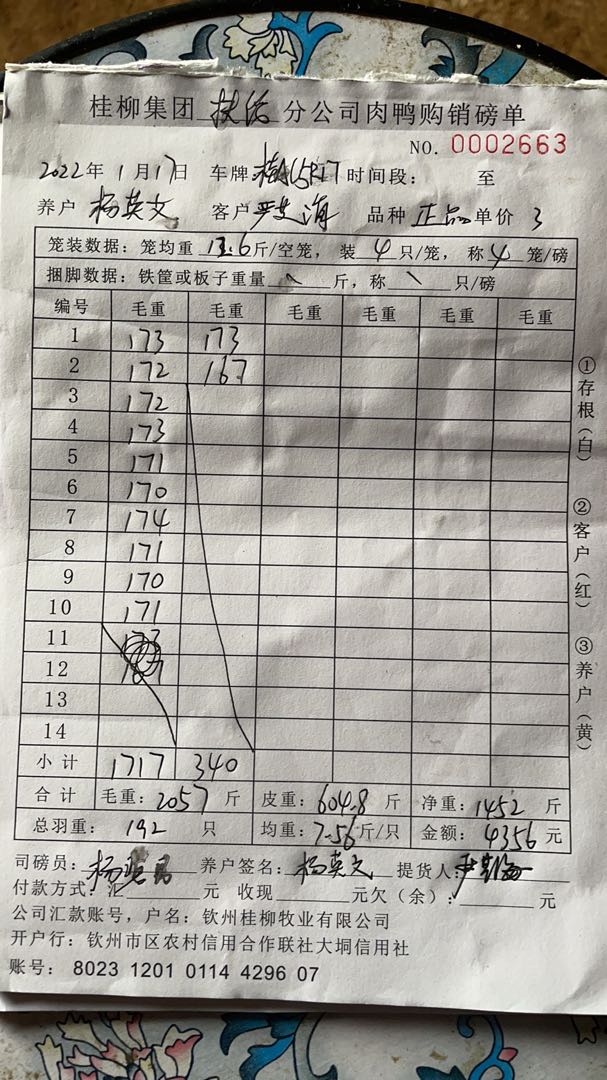 桂柳集团 分公司肉鸭购销磅单
NO. 0002663
2022年1月17日 车牌 时间段： 至
养户 杨英文 客户 品种 正品 单价 3
笼装数据：笼均重 12.6 斤/空笼，装 4 只/笼，称 4 笼/磅
捆脚数据：铁筐或板子重量 \ 斤，称 \ 只/磅
编号 毛重 毛重 毛重 毛重 毛重 毛重
1 173 173
2 172 167
3 172
4 173
5 171
6 170
7 174
8 171
9 170
10 171
11
12
13
14
小计 1717 340
合计 毛重：2057 斤 皮重：604.8 斤 净重：1452 斤
总羽重：192 只 均重：7.56 斤/只 金额：4356 元
司磅员： 养户签名：杨英文 提货人：
付款方式：汇 元 收现 元欠（余）： 元
公司汇款账号，户名：钦州桂柳牧业有限公司
开户行：钦州市区农村信用合作联社大垌信用社
账号：8023 1201 0114 4296 07
①存根（白） ②客户（红） ③养户（黄）